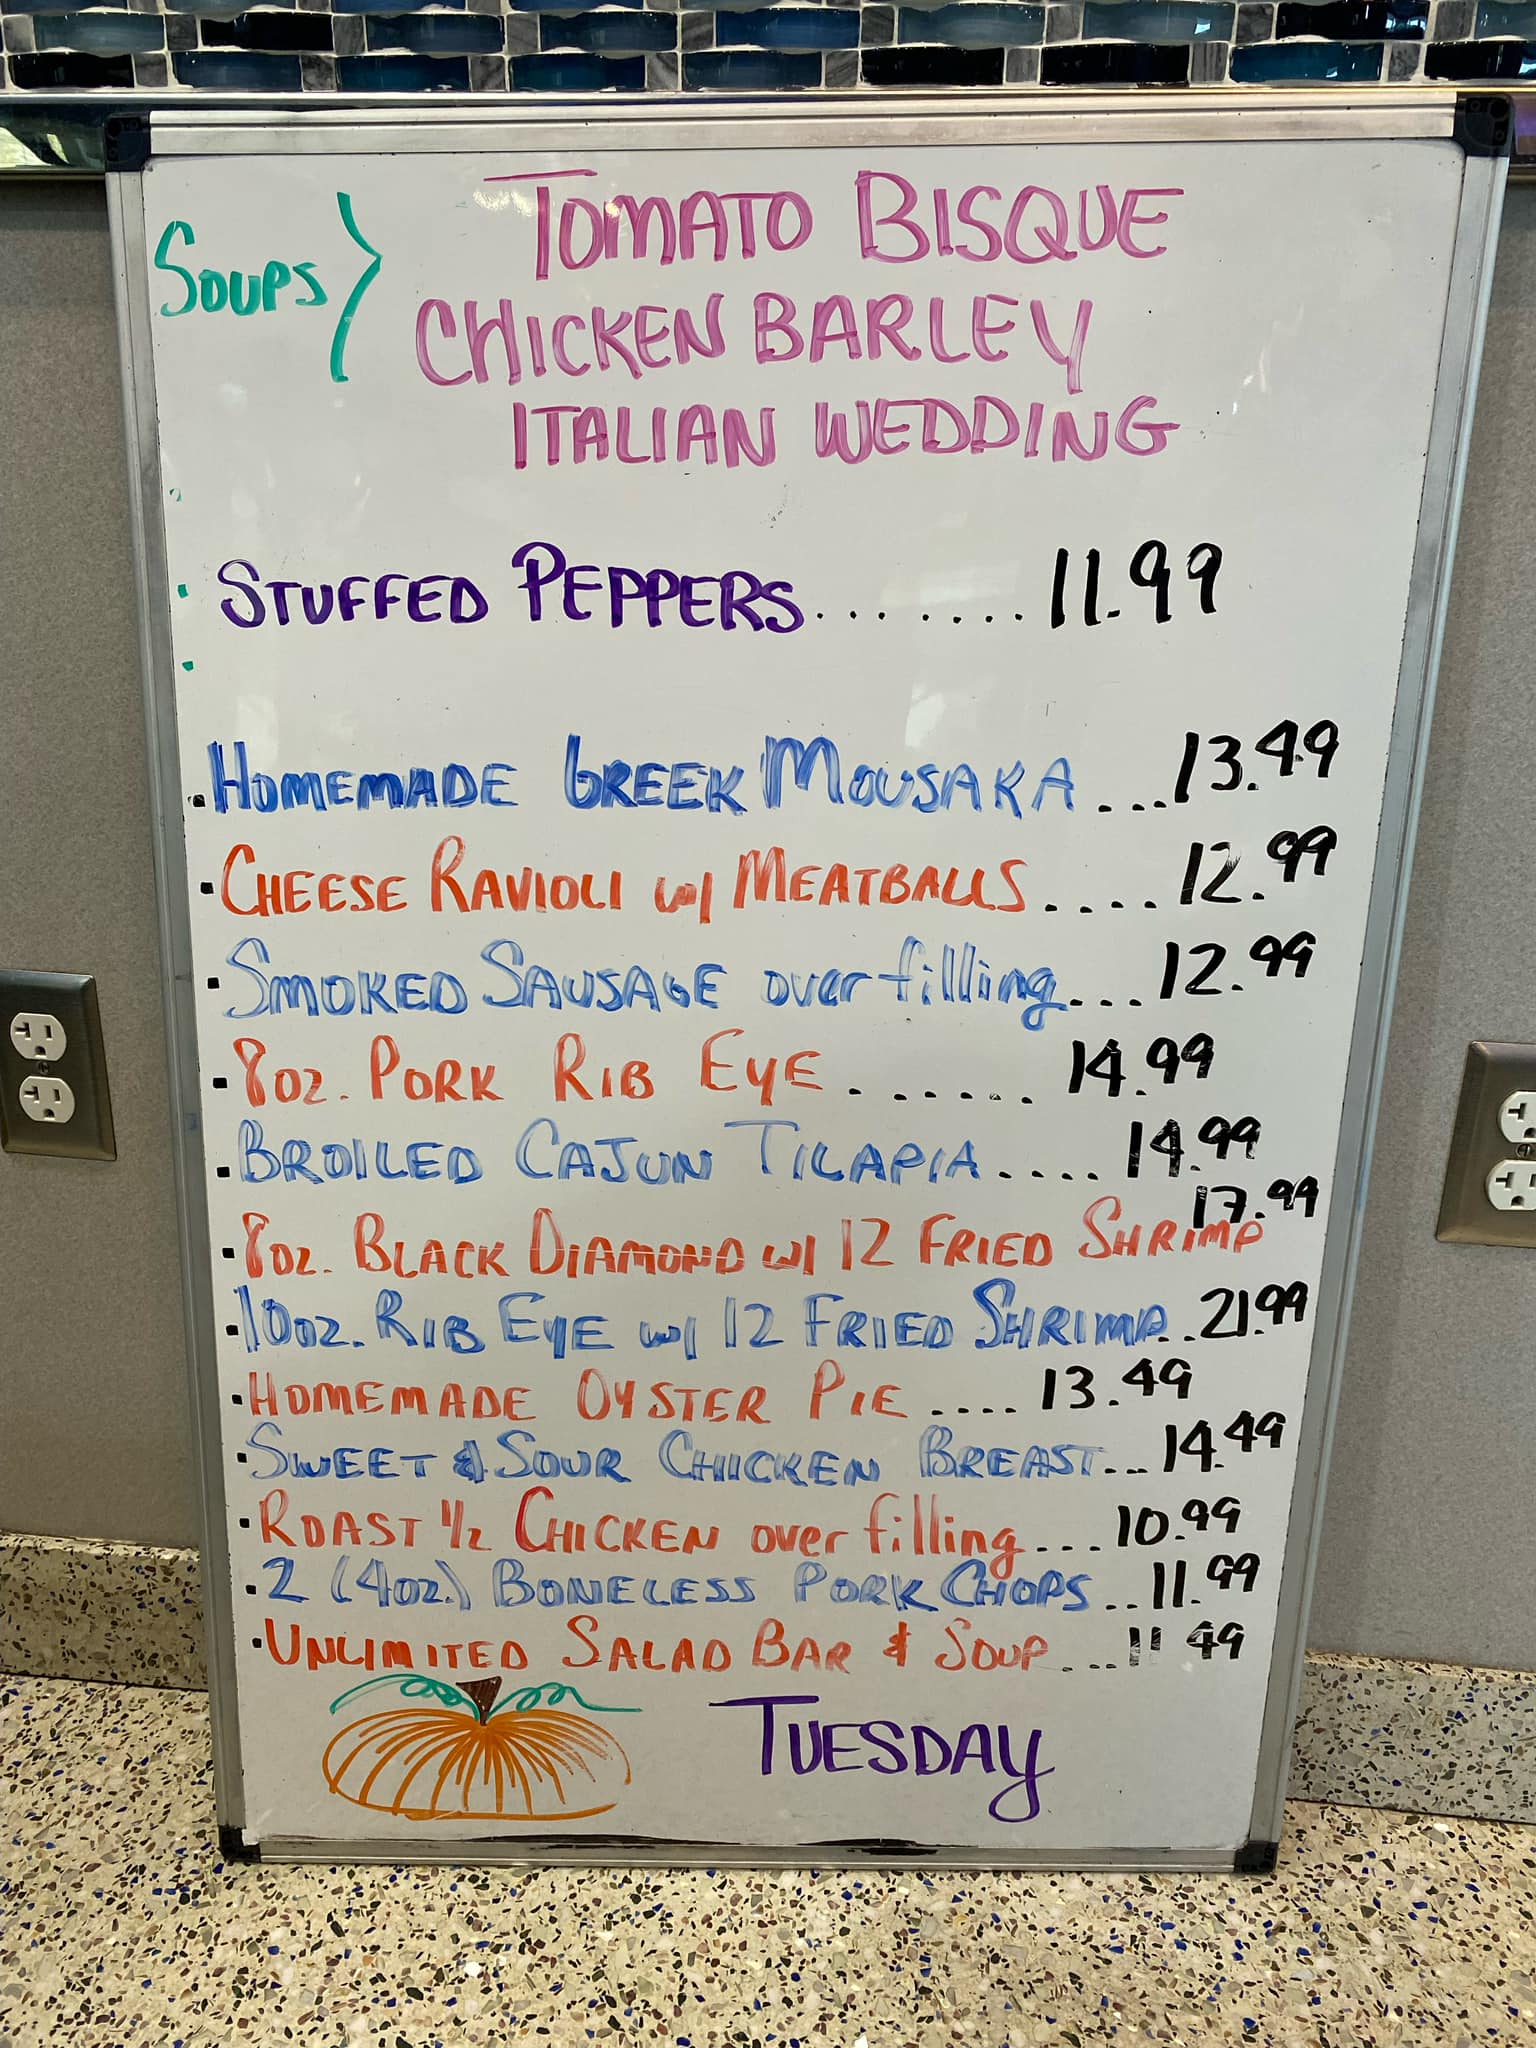 Soups
TOMATO BISQUE
CHICKEN BARLEY
ITALIAN WEDDING
STUFFED PEPPERS........11.99
.HOMEMADE GREEK MOUSAKA....13.49
·CHEESE RAVIOLI w/ MEATBALLS....12.99
·SMOKED SAUSAGE over filling....12.99
·8oz. PORK RIB EYE......14.99
·BROILED CAJUN TILAPIA....14.99
17.99
·8oz. BLACK DIAMOND w/ 12 FRIED SHRIMP
·10oz. RIB EYE w/ 12 FRIED SHRIMP..21.99
·HOMEMADE OYSTER PIE....13.49
·SWEET & SOUR CHICKEN BREAST...14.49
·ROAST 1/2 CHICKEN over filling....10.99
·2 (4oz.) BONELESS PORK CHOPS..11.99
·UNLIMITED SALAD BAR & SOUP....11 49
TUESDAY